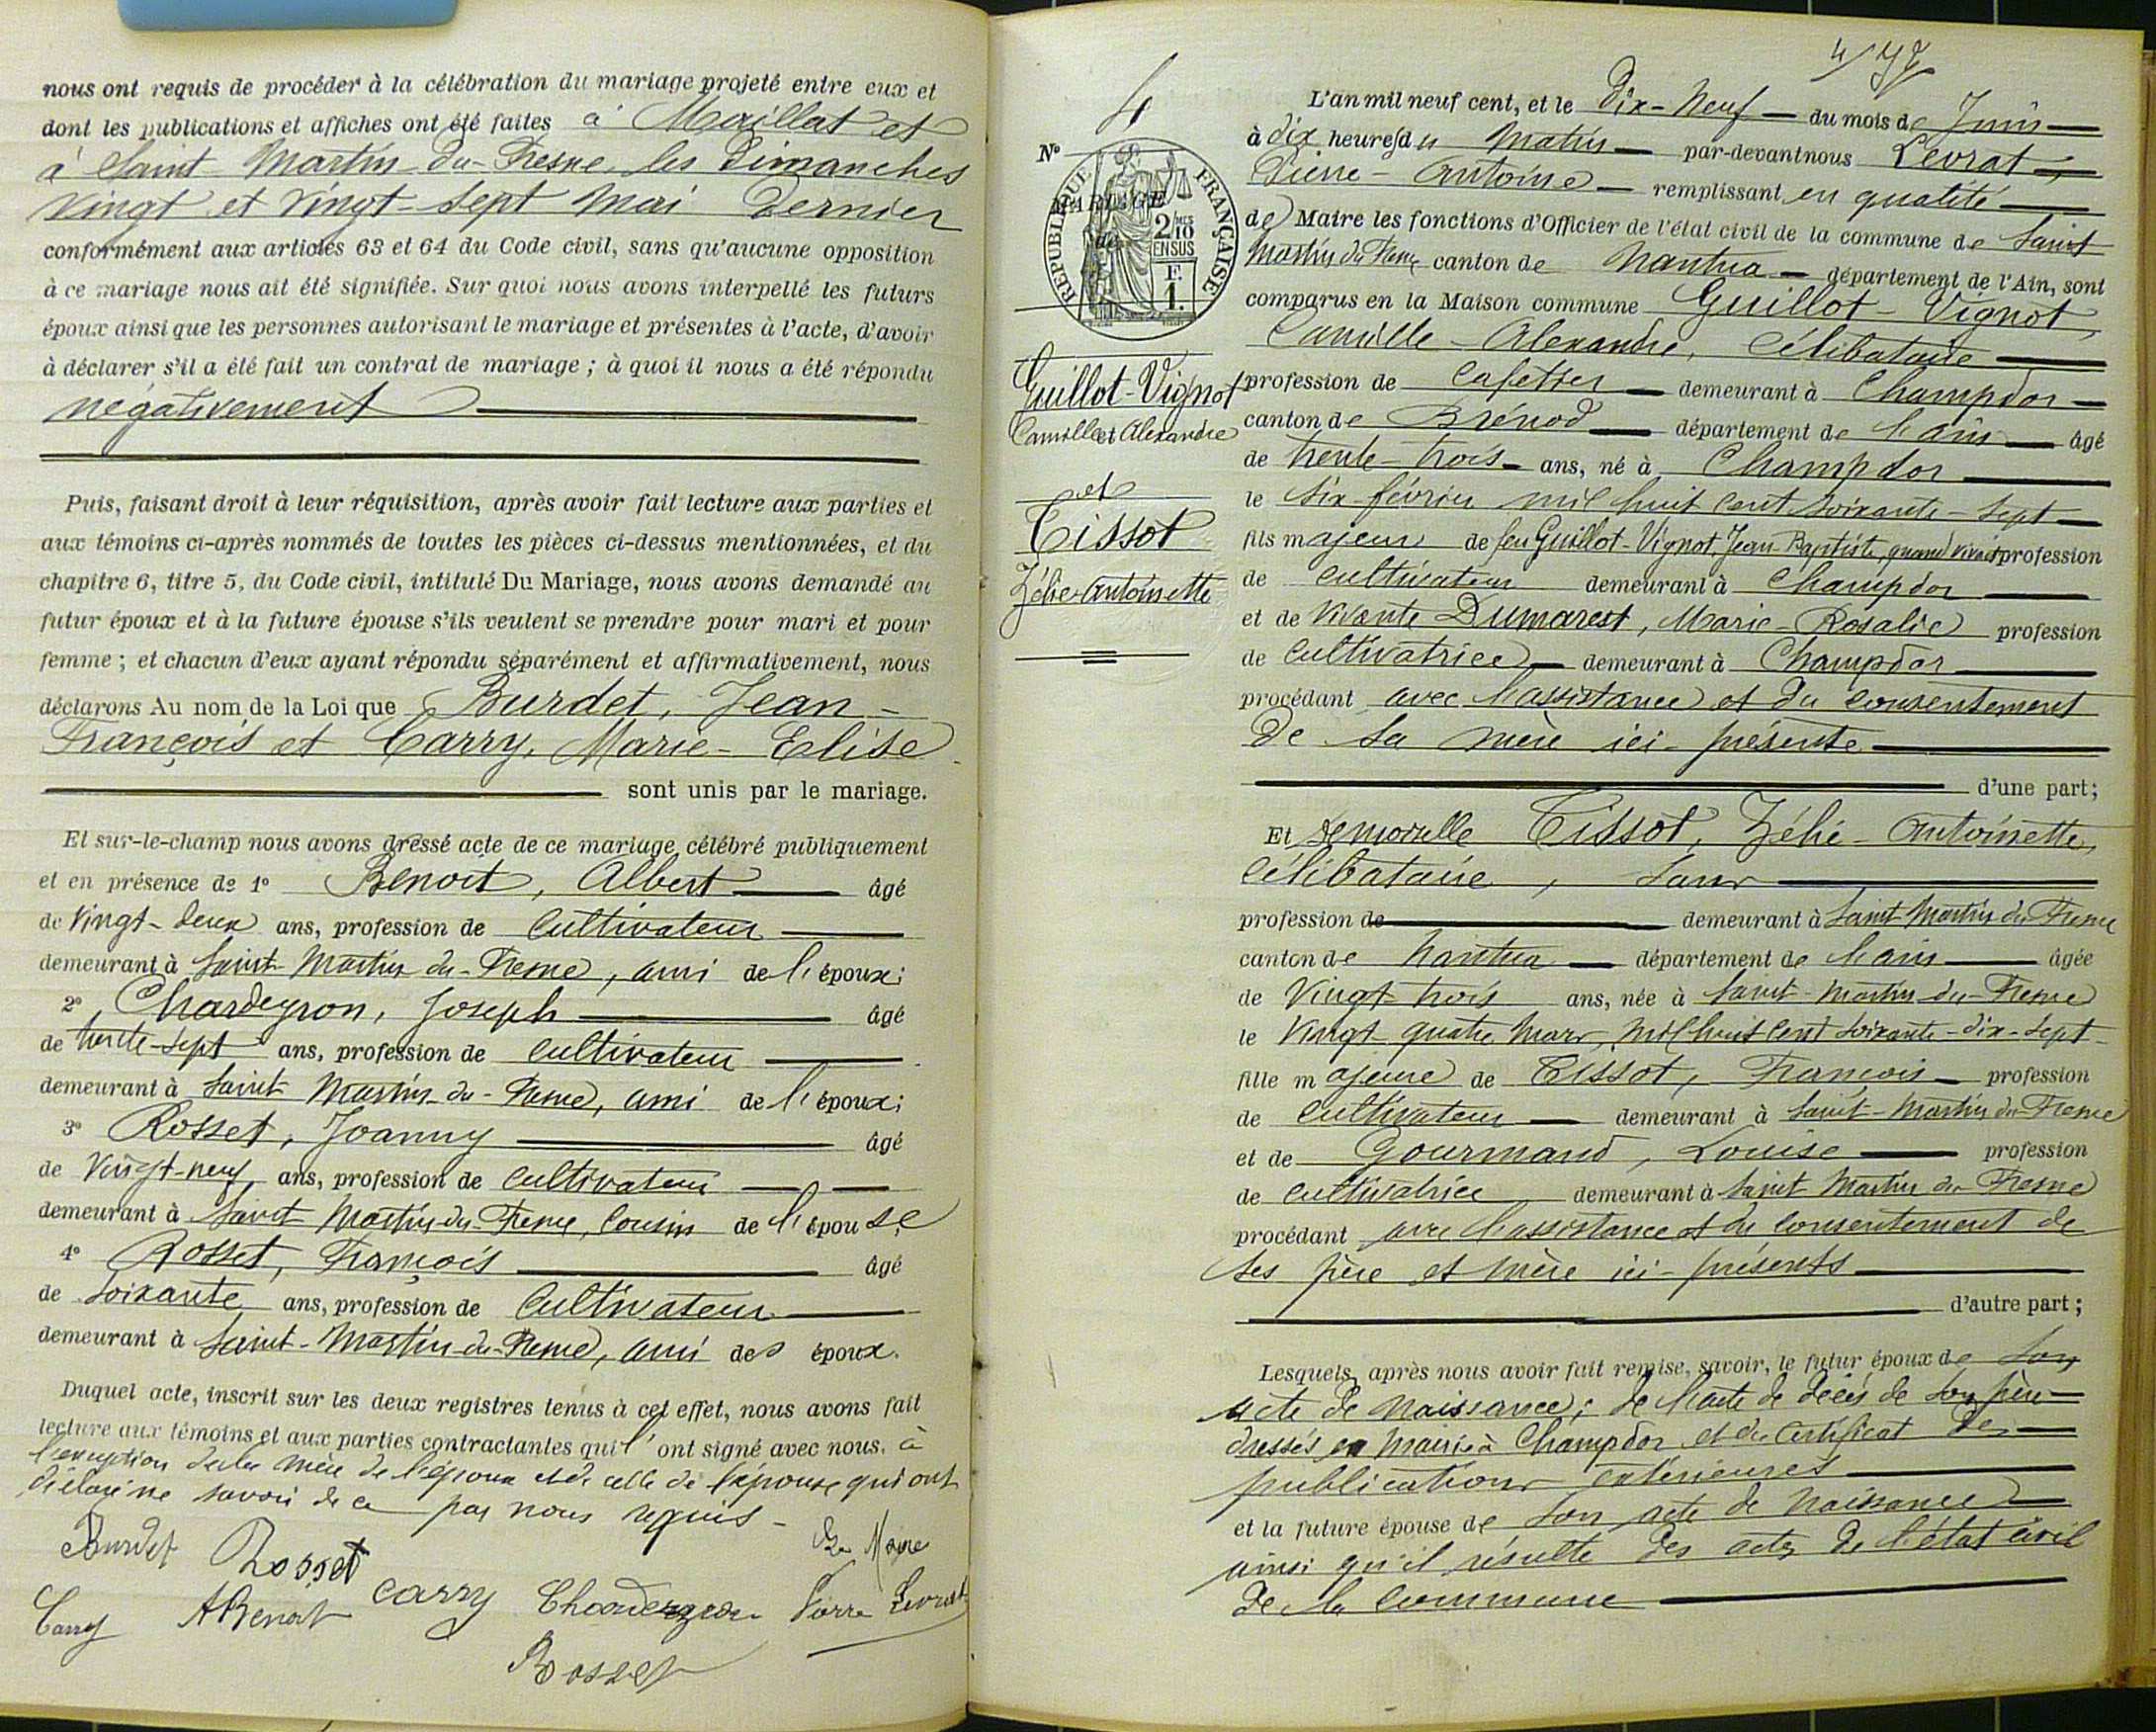 nous ont requis de procéder à la célébration du mariage projeté entre eux et
dont les publications et affiches ont été faites à Maillat et
à Saint Martin-du-Fresne, les Dimanches
Vingt et Vingt sept Mai Dernier
conformément aux articles 63 et 64 du Code civil, sans qu'aucune opposition
à ce mariage nous ait été signifiée. Sur quoi nous avons interpellé les futurs
époux ainsi que les personnes autorisant le mariage et présentes à l'acte, d'avoir
à déclarer s'il a été fait un contrat de mariage ; à quoi il nous a été répondu
négativement
Puis, faisant droit à leur réquisition, après avoir fait lecture aux parties et
aux témoins ci-après nommés de toutes les pièces ci-dessus mentionnées, et du
chapitre 6, titre 5, du Code civil, intitulé Du Mariage, nous avons demandé au
futur époux et à la future épouse s'ils veulent se prendre pour mari et pour
femme ; et chacun d'eux ayant répondu séparément et affirmativement, nous
déclarons Au nom de la Loi que Burdet, Jean-
François et Carry, Marie-Elise
sont unis par le mariage.
Et sur-le-champ nous avons dressé acte de ce mariage célébré publiquement
et en présence de 1° Benoit, Albert âgé
de Vingt-deux ans, profession de Cultivateur
demeurant à Saint-Martin-du-Fresne, ami de l'époux;
2° Chardeyron, Joseph âgé
de trente-sept ans, profession de cultivateur
demeurant à Saint Martin-du-Fresne, ami de l'époux;
3° Rosset, Joanny âgé
de Vingt-neuf ans, profession de cultivateur
demeurant à Saint Martin-du-Fresne, cousin de l'épouse
4° Rosset, François âgé
de soixante ans, profession de Cultivateur
demeurant à Saint-Martin-du-Fresne, ami des époux.
Duquel acte, inscrit sur les deux registres tenus à cet effet, nous avons fait
lecture aux témoins et aux parties contractantes qui l'ont signé avec nous, à
l'exception de la mère de l'époux et de celle de l'épouse qui ont
déclaré ne savoir de ce par nous requis -
Burdet Rosset Le Maire
Carry ABenoit Carry Chardeyron Pierre Levrat
Rosset
4
N° 4
MARIAGE
de
REPUBLIQUE FRANÇAISE
2/10 EN SUS
F. 1.
Guillot-Vignot
Camille Alexandre
et
Tissot
Zélie-Antoinette
L'an mil neuf cent, et le Dix-Neuf du mois de Juin
à dix heures du Matin par-devant nous Levrat,
Pierre-Antoine remplissant en qualité
de Maire les fonctions d'Officier de l'état civil de la commune de Saint
Martin du Fresne canton de Nantua département de l'Ain, sont
comparus en la Maison commune Guillot-Vignot,
Camille-Alexandre, célibataire
profession de Cafetier demeurant à Champdor
canton de Brénod département de l'Ain âgé
de trente-trois ans, né à Champdor
le six février mil huit cent soixante-sept
fils majeur de feu Guillot-Vignot, Jean-Baptiste, quand vivait profession
de cultivateur demeurant à Champdor
et de vivante Dumarest, Marie-Rosalie profession
de cultivatrice demeurant à Champdor
procédant avec l'assistance et du consentement
de sa mère ici-présente
d'une part;
Et Demoiselle Tissot, Zélie-Antoinette,
célibataire, sans
profession de demeurant à Saint Martin du Fresne
canton de Nantua département de l'Ain âgée
de Vingt-trois ans, née à Saint-Martin-du-Fresne
le Vingt quatre Mars, mil huit cent soixante-dix-sept
fille majeure de Tissot, François profession
de cultivateur demeurant à Saint-Martin du Fresne
et de Gourmand, Louise profession
de cultivatrice demeurant à Saint Martin du Fresne
procédant avec l'assistance et du consentement de
ses père et mère ici-présents
d'autre part;
Lesquels, après nous avoir fait remise, savoir, le futur époux de son
acte de naissance; de l'acte de décès de son père
dressés en mairie à Champdor et du certificat de
publications extérieures
et la future épouse de son acte de naissance
ainsi qu'il résulte des actes de l'état civil
de la commune